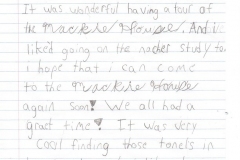 It was wonderful having a tour of
the Mackle House. And i
liked going on the nacher study to.
i hope that i can come
to the Mackle House
again soon! We all had a
graet time! It was very
cool finding those tonels in